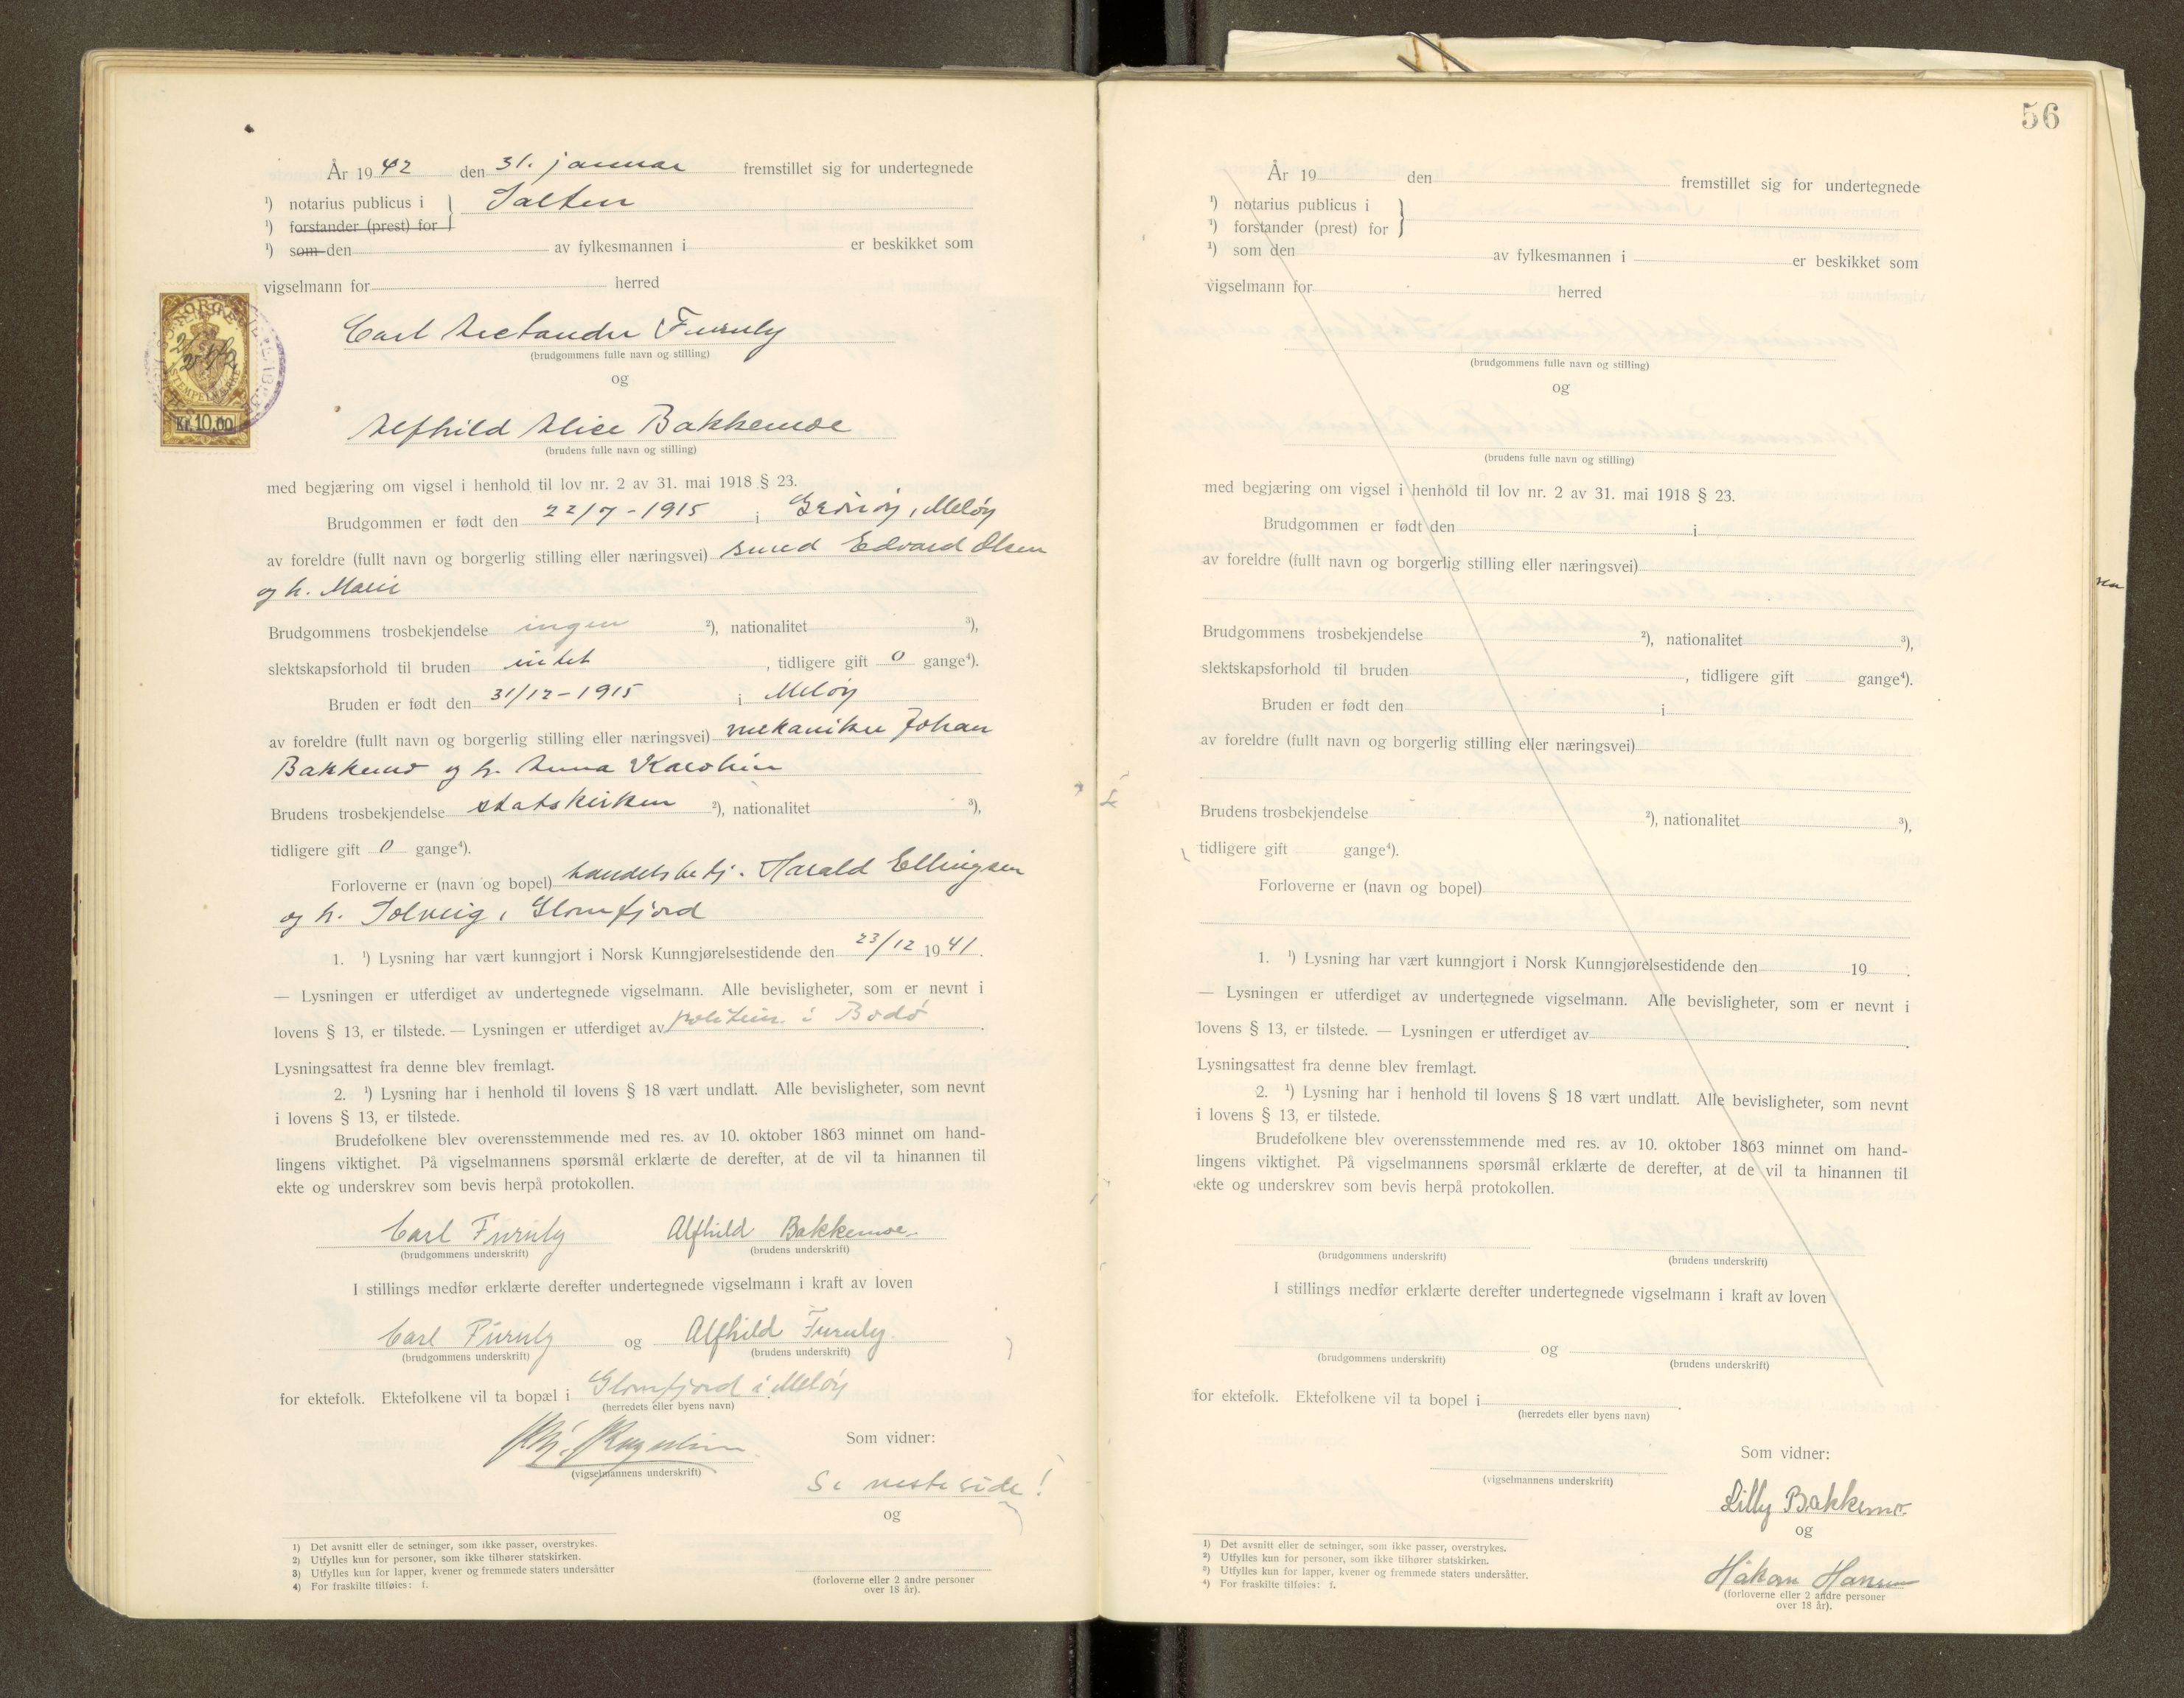 År 1942 den 31. januar fremstillet sig for undertegnede
¹) notarius publicus i } Salten
¹) forstander (prest) for
¹) som den av fylkesmannen i er beskikket som
vigselmann for herred
NORGE
STEMPELMERKE
Kr. 10,00
Carl Furuly
(brudgommens fulle navn og stilling)
og
Alfhild Alice Bakkemoe
(brudens fulle navn og stilling)
med begjæring om vigsel i henhold til lov nr. 2 av 31. mai 1918 § 23.
Brudgommen er født den 22/7-1915 i Grönöy, Meløy
av foreldre (fullt navn og borgerlig stilling eller næringsvei) smed Edvard Olsen
og h. Marie
Brudgommens trosbekjendelse ingen ²), nationalitet ³),
slektskapsforhold til bruden intet, tidligere gift 0 gange⁴).
Bruden er født den 31/12-1915 i Meløy
av foreldre (fullt navn og borgerlig stilling eller næringsvei) mekaniker Johan
Bakkemo og h. Anna Karoline
Brudens trosbekjendelse statskirken ²), nationalitet ³),
tidligere gift 0 gange⁴).
Forloverne er (navn og bopel) handelsbetj. Harald Ellingsen
og h. Solveig, Glomfjord
1. ¹) Lysning har vært kunngjort i Norsk Kunngjørelsestidende den 23/12 1941.
— Lysningen er utferdiget av undertegnede vigselmann. Alle bevisligheter, som er nevnt i
lovens § 13, er tilstede. — Lysningen er utferdiget av politim. i Bodø.
Lysningsattest fra denne blev fremlagt.
2. ¹) Lysning har i henhold til lovens § 18 vært undlatt. Alle bevisligheter, som nevnt
i lovens § 13, er tilstede.
Brudefolkene blev overensstemmende med res. av 10. oktober 1863 minnet om hand-
lingens viktighet. På vigselmannens spørsmål erklærte de derefter, at de vil ta hinannen til
ekte og underskrev som bevis herpå protokollen.
Carl Furuly Alfhild Bakkemoe
(brudgommens underskrift) (brudens underskrift)
I stillings medfør erklærte derefter undertegnede vigselmann i kraft av loven
Carl Furuly og Alfhild Furuly
(brudgommens underskrift) (brudens underskrift)
for ektefolk. Ektefolkene vil ta bopæl i Glomfjord i Meløy
(herredets eller byens navn)
(vigselmannens underskrift)
Som vidner:
Se neste side!
og
(forloverne eller 2 andre personer
over 18 år).
1) Det avsnitt eller de setninger, som ikke passer, overstrykes.
2) Utfylles kun for personer, som ikke tilhører statskirken.
3) Utfylles kun for lapper, kvener og fremmede staters undersåtter
4) For fraskilte tilføies: f.
56
År 19 den fremstillet sig for undertegnede
¹) notarius publicus i }
¹) forstander (prest) for
¹) som den av fylkesmannen i er beskikket som
vigselmann for herred
(brudgommens fulle navn og stilling)
og
(brudens fulle navn og stilling)
med begjæring om vigsel i henhold til lov nr. 2 av 31. mai 1918 § 23.
Brudgommen er født den i
av foreldre (fullt navn og borgerlig stilling eller næringsvei)
Brudgommens trosbekjendelse ²), nationalitet ³),
slektskapsforhold til bruden , tidligere gift gange⁴).
Bruden er født den i
av foreldre (fullt navn og borgerlig stilling eller næringsvei)
Brudens trosbekjendelse ²), nationalitet ³),
tidligere gift gange⁴).
Forloverne er (navn og bopel)
1. ¹) Lysning har vært kunngjort i Norsk Kunngjørelsestidende den 19 .
— Lysningen er utferdiget av undertegnede vigselmann. Alle bevisligheter, som er nevnt i
lovens § 13, er tilstede. — Lysningen er utferdiget av .
Lysningsattest fra denne blev fremlagt.
2. ¹) Lysning har i henhold til lovens § 18 vært undlatt. Alle bevisligheter, som nevnt
i lovens § 13, er tilstede.
Brudefolkene blev overensstemmende med res. av 10. oktober 1863 minnet om hand-
lingens viktighet. På vigselmannens spørsmål erklærte de derefter, at de vil ta hinannen til
ekte og underskrev som bevis herpå protokollen.
(brudgommens underskrift) (brudens underskrift)
I stillings medfør erklærte derefter undertegnede vigselmann i kraft av loven
og
(brudgommens underskrift) (brudens underskrift)
for ektefolk. Ektefolkene vil ta bopel i .
(herredets eller byens navn)
(vigselmannens underskrift)
Som vidner:
Lilly Bakkemo
og
Håkon Hansen
(forloverne eller 2 andre personer
over 18 år).
¹) Det avsnitt eller de setninger, som ikke passer, overstrykes.
²) Utfylles kun for personer, som ikke tilhører statskirken.
³) Utfylles kun for lapper, kvener og fremmede staters undersåtter.
⁴) For fraskilte tilføies: f.